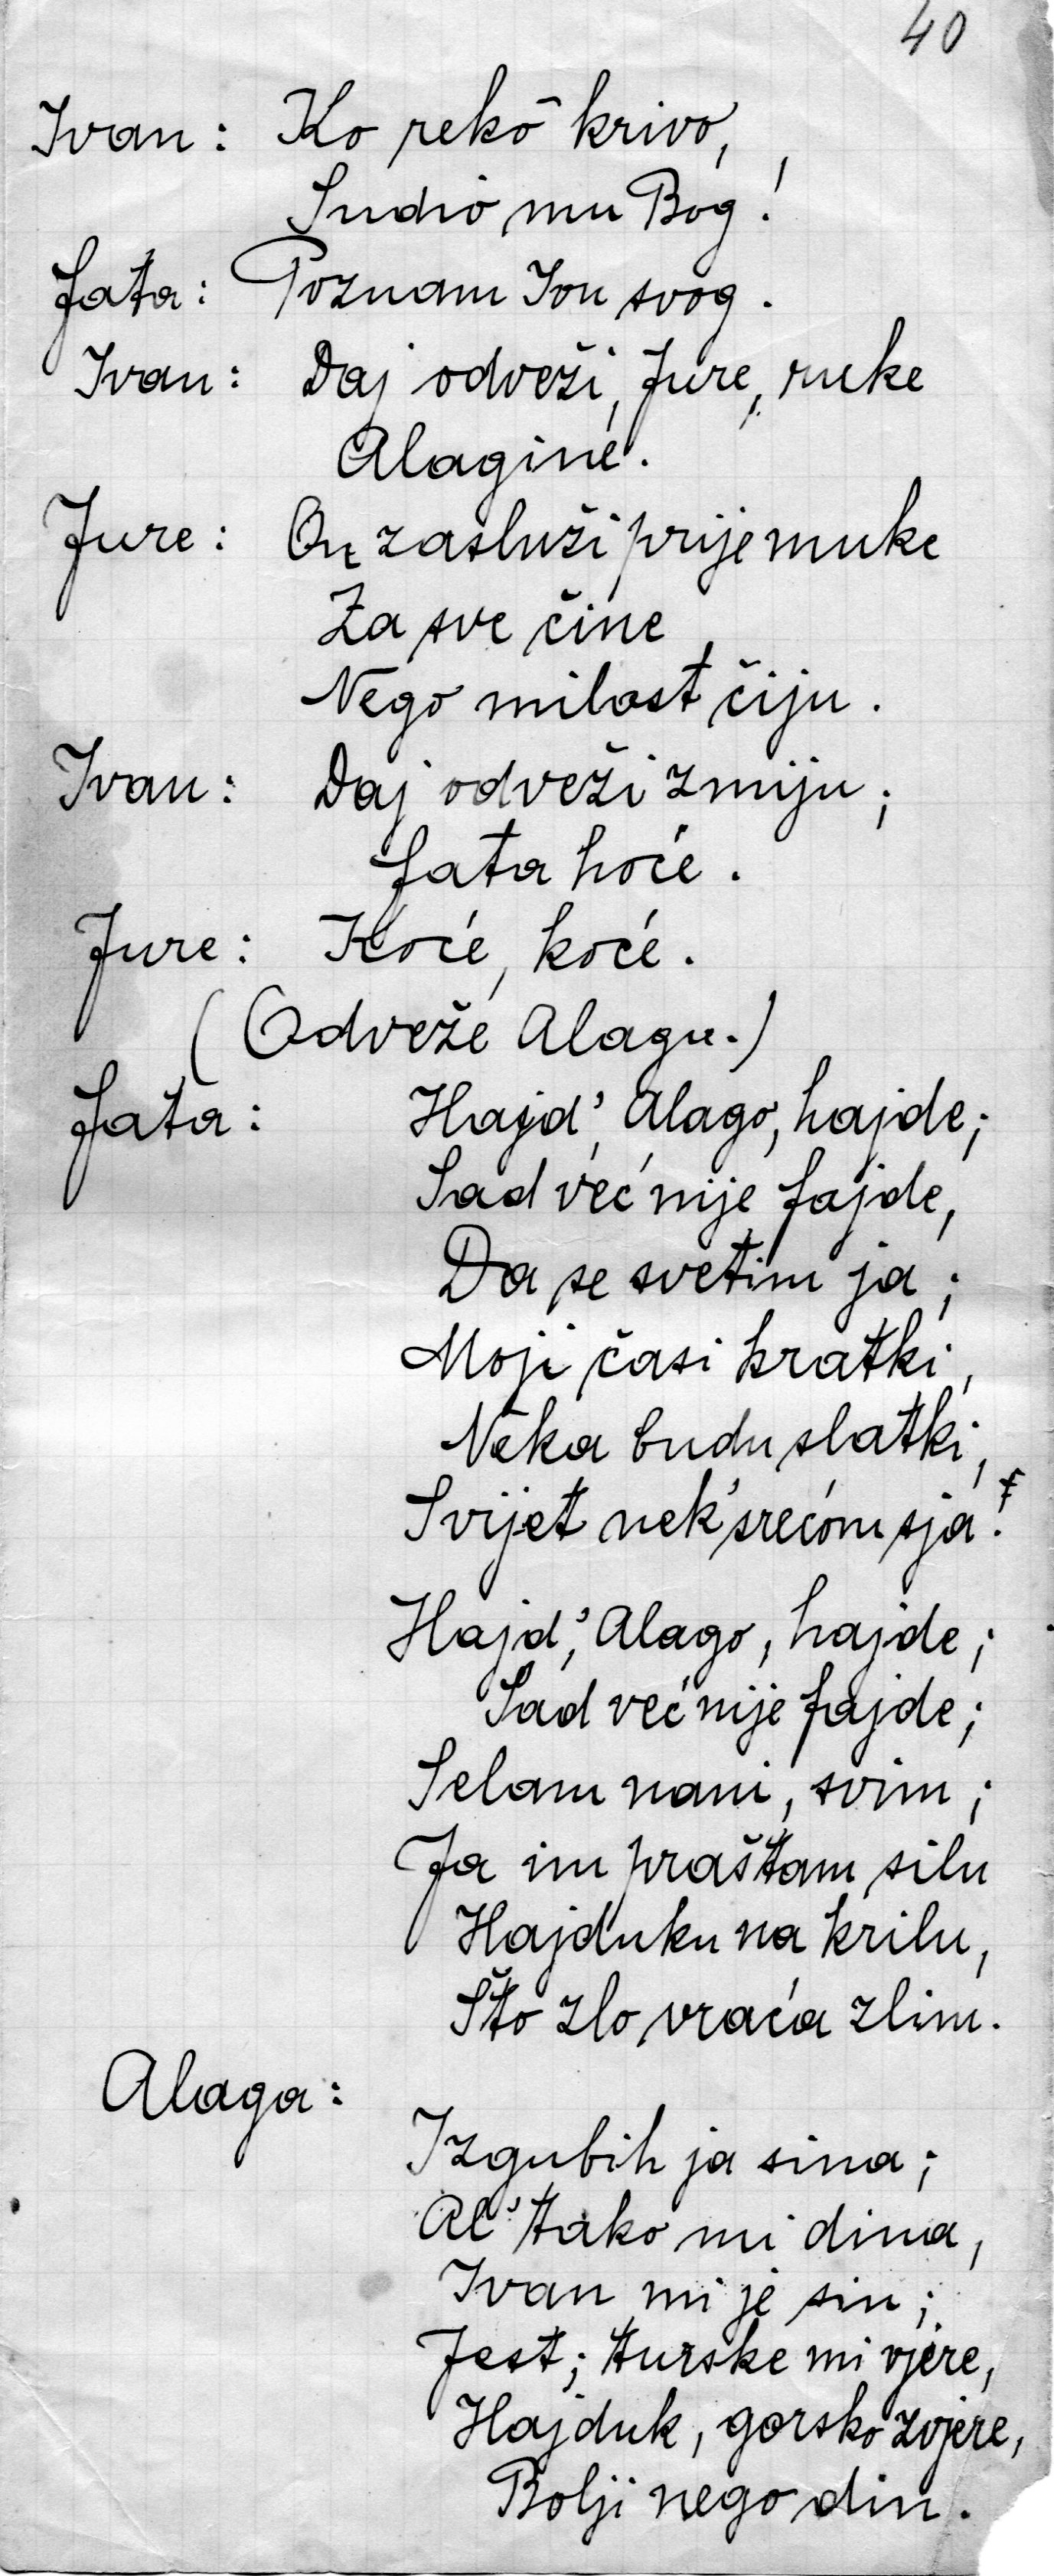 40
Ivan: Ko rekō krivo,
Sudio mu Bog!
Fata: Poznam Ivu svog.
Ivan: Daj odveži, Jure, ruke
Alagine.
Jure: On zasluži prije muke
Za sve čine
Nego milost čiju.
Ivan: Daj odveži zmiju;
Fata hoće.
Jure: Hoće, hoće.
(Odveže Alagu.)
Fata: Hajd', Alago, hajde;
Sad već nije fajde,
Da se svetim ja;
Moji časi kratki,
Neka budu slatki,
Svijet nek' srećom sja!
Hajd', Alago, hajde;
Sad već nije fajde;
Selam nam, svim;
Ja im praštam silu
Hajduku na krilu,
Što zlo vraća zlim.
Alaga:
Izgubih ja sina;
Al' tako mi dina,
Ivan mi je sin;
Jest; turske mi vjere,
Hajduk, gorsko zvjere,
Bolji nego din.